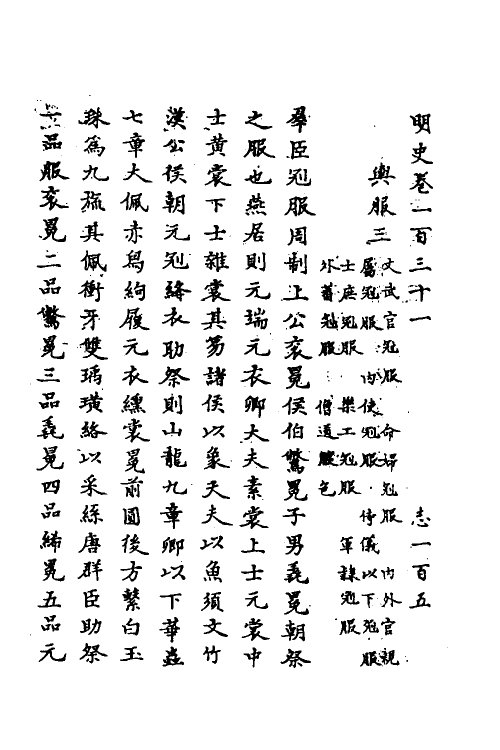 明史卷一百三十一　志一百五
輿服三
文武官冠服　命婦冠服　內外官親
屬冠服　內使冠服　侍儀以下冠服
士庶冠服　樂工冠服　軍隸冠服
外蕃冠服　僧道服色
羣臣冠服周制上公衮冕侯伯鷩冕子男毳冕朝祭
之服也燕居則元端元衣卿大夫素裳上士元裳中
士黃裳下士雜裳其笏諸侯以象大夫以魚須文竹
漢公侯朝元冠絳衣助祭則山龍九章卿以下華蟲
七章大佩赤舄絇履元衣纁裳冕前圓後方繫白玉
珠為九旒其佩衝牙雙瑀璜絡以采絲唐群臣助祭
一品服衮冕二品鷩冕三品毳冕四品絺冕五品元